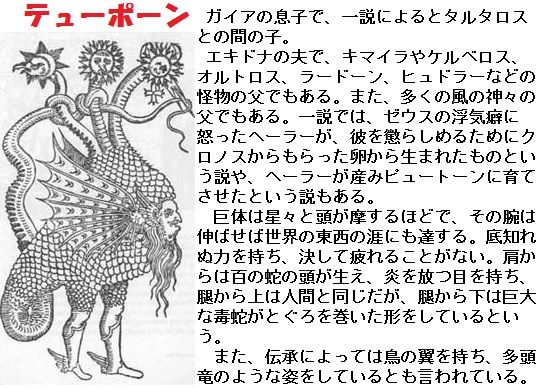 テューポーン
ガイアの息子で、一説によるとタルタロス
との間の子。
エキドナの夫で、キマイラやケルベロス、
オルトロス、ラードーン、ヒュドラーなどの
怪物の父でもある。また、多くの風の神々の
父でもある。一説では、ゼウスの浮気癖に
怒ったヘーラーが、彼を懲らしめるためにク
ロノスからもらった卵から生まれたものとい
う説や、ヘーラーが産みピュートーンに育て
させたという説もある。
巨体は星々と頭が摩するほどで、その腕は
伸ばせば世界の東西の涯にも達する。底知れ
ぬ力を持ち、決して疲れることがない。肩か
らは百の蛇の頭が生え、炎を放つ目を持ち、
腿から上は人間と同じだが、腿から下は巨大
な毒蛇がとぐろを巻いた形をしているとい
う。
また、伝承によっては鳥の翼を持ち、多頭
竜のような姿をしているとも言われている。